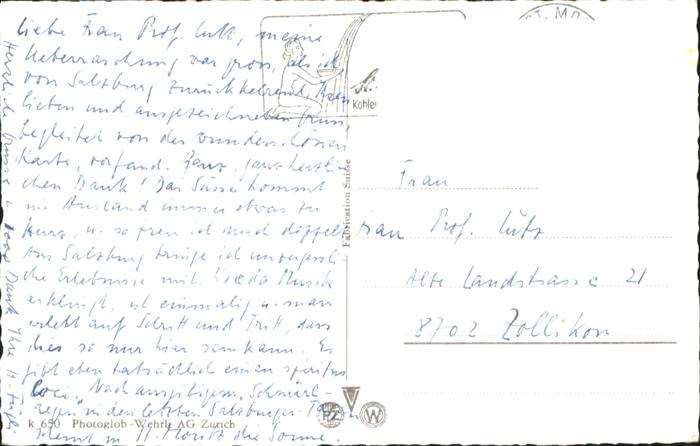 Liebe Frau Prof. Lutz, meine
Ueberraschung war gross, als ich
von Salzburg zurückkehrend, Ihren
lieben und ausgezeichneten Gruss,
begleitet von der wunderschönen
Karte, vorfand. Ganz, ganz herzli-
chen Dank! Das Süsse kommt
im Ausland immer etwas zu
kurz, u. so freu ich mich doppelt.
Aus Salzburg bringe ich unvergessli-
che Erlebnisse mit. Musik
erklingt, ist einmalig u. man
erlebt auf Schritt und Tritt, dass
dies so nur hier sein kann. Es
gibt eben tatsächlich einen spiritus
loci. Nach ausgibigem Schnürl-
regen in den letzten Salzburger-Tagen
scheint in St. Moritz die Sonne.
Herzliche Grüsse u. Dank Ihre H.
St. Mo
St.
Kohle
Fabrication Suisse
Frau
Frau Prof. Lutz
Alte Landstrasse 21
8702 Zollikon
k 650 Photoglob-Wehrli AG Zürich
PZ
W